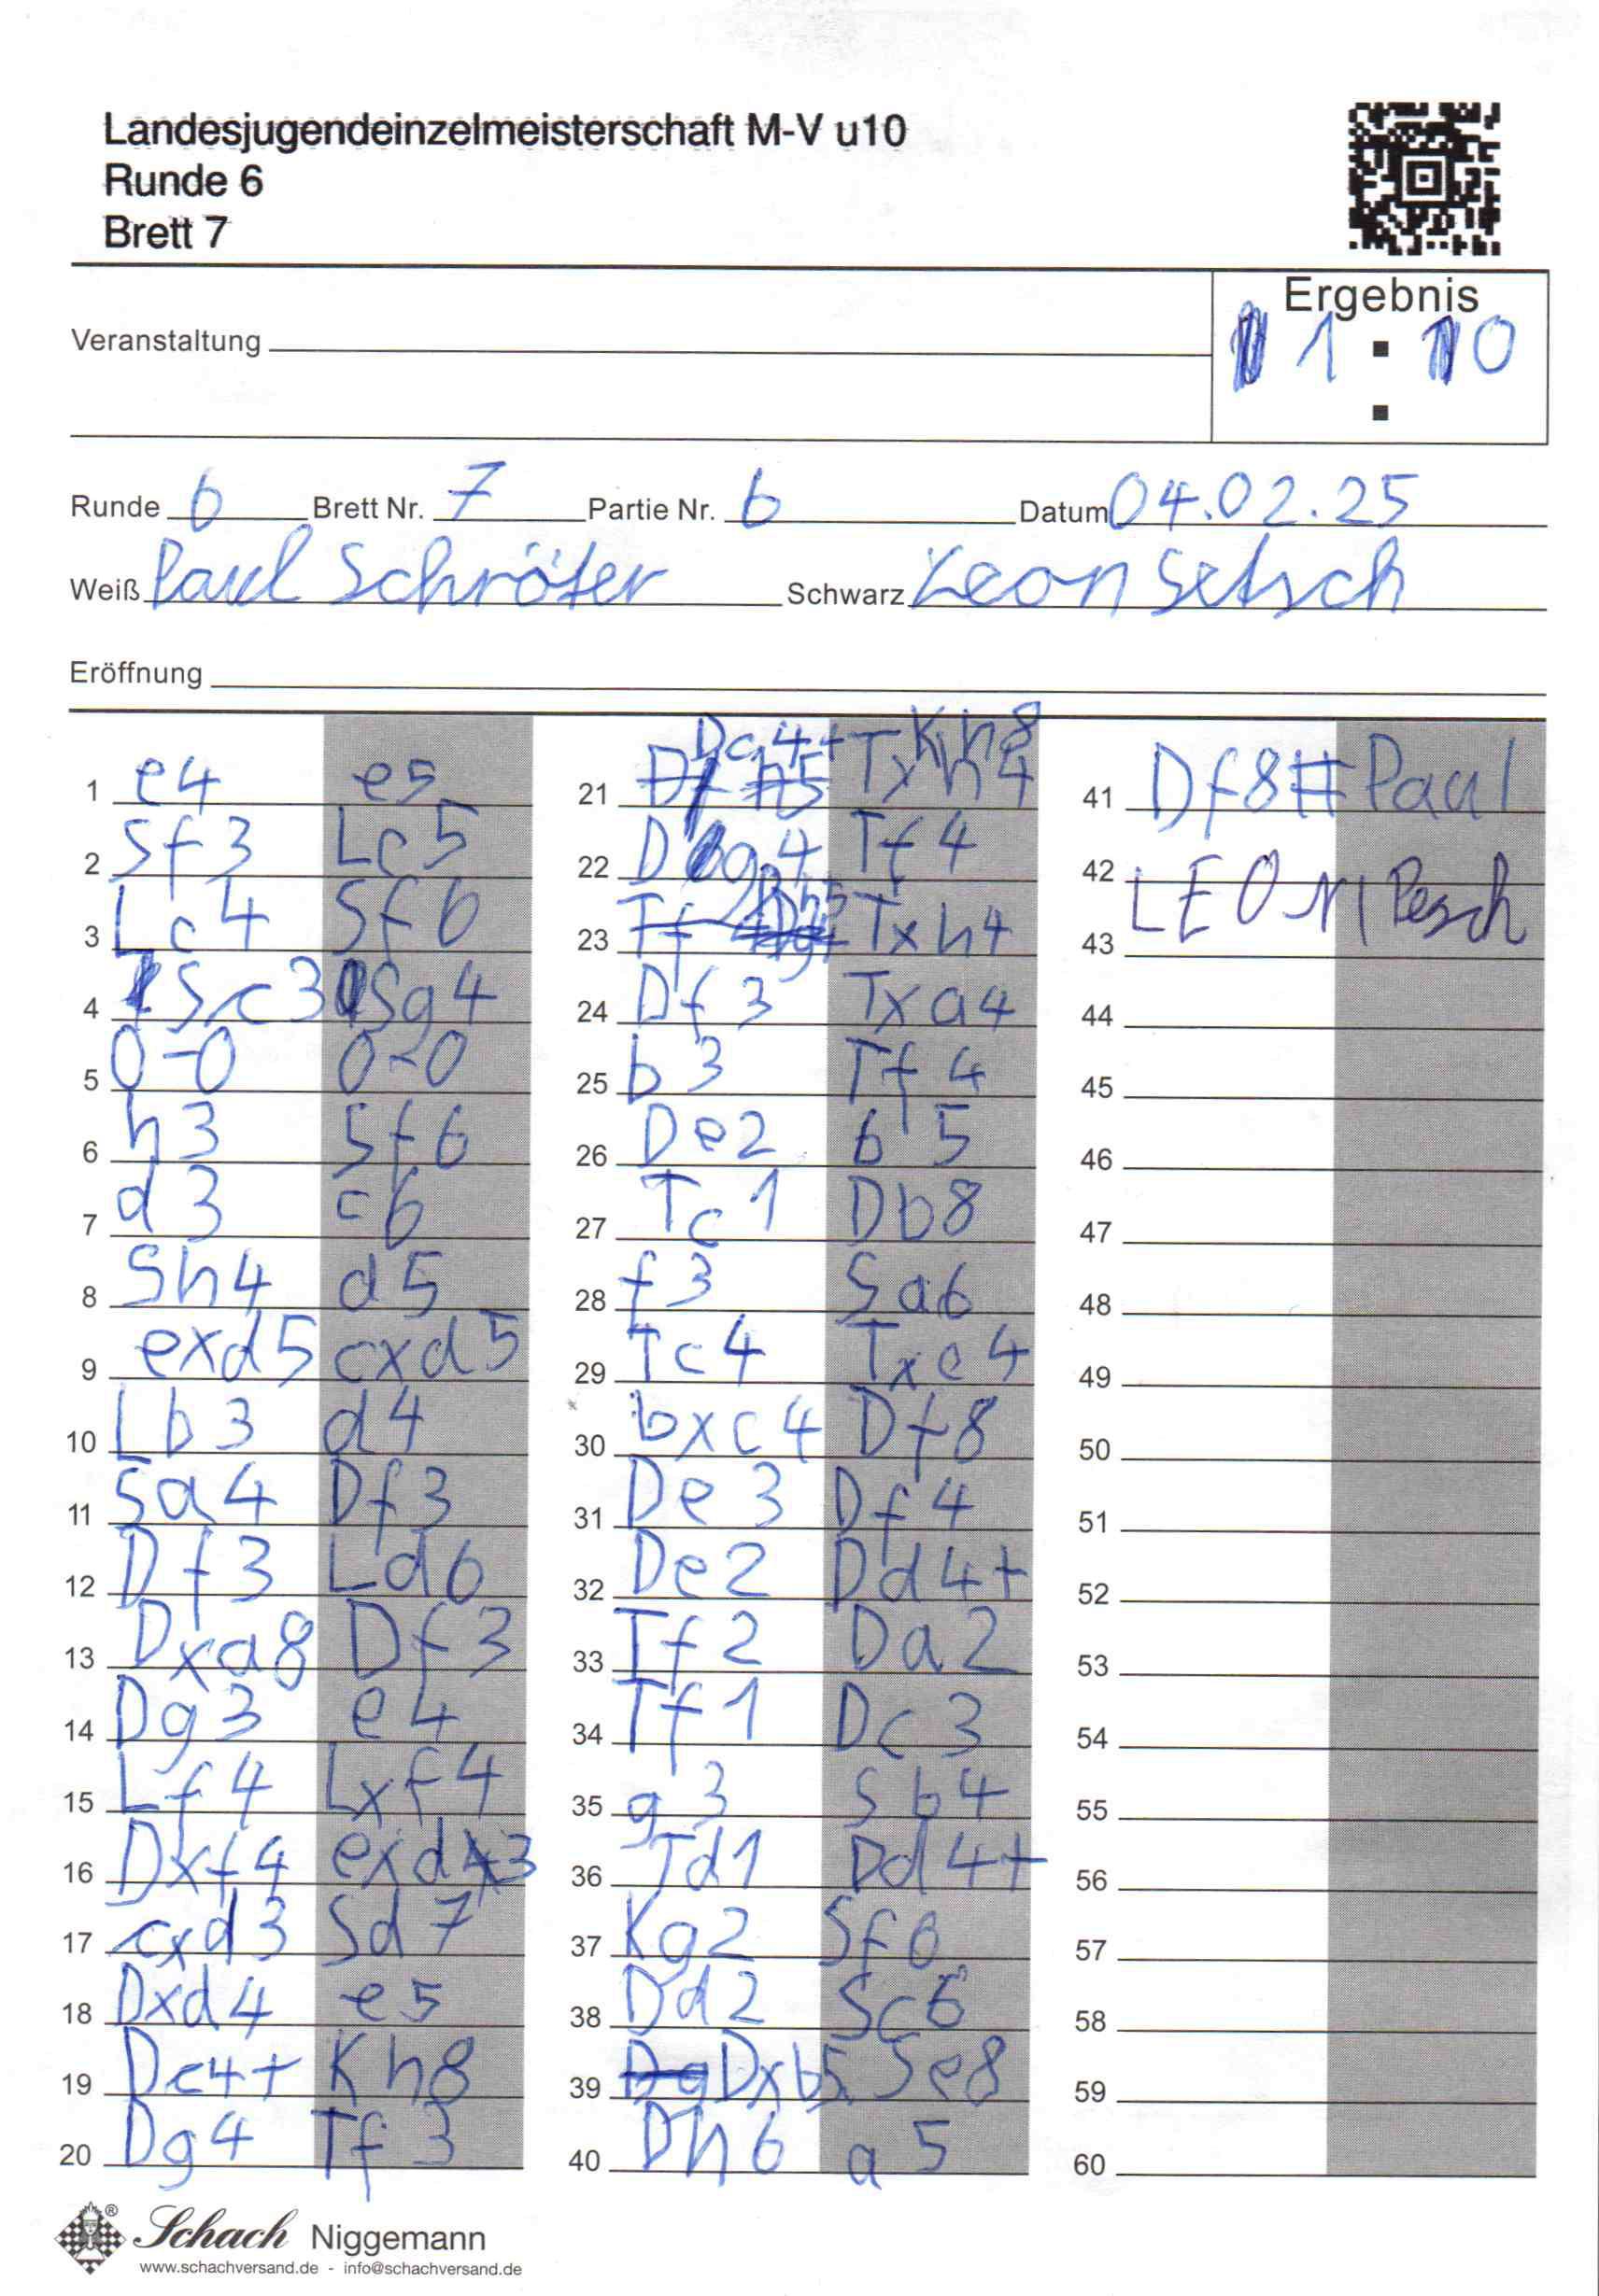 Landesjugendeinzelmeisterschaft M-V u10
Runde 6
Brett 7
Ergebnis
1 : 0
Veranstaltung
Runde 6 Brett Nr. 7 Partie Nr. 6 Datum 04.02.25
Weiß Paul Schröter Schwarz Leon
Eröffnung
1 e4 e5
2 Sf3 Lc5
3 Lc4 Sf6
4 Sc3 Sg4
5 0-0 0-0
6 h3 Sf6
7 d3 c6
8 Sh4 d5
9 exd5 cxd5
10 Lb3 d4
11 Sa4 Df3
12 Df3 Ld6
13 Dxa8 Df3
14 Dg3 e4
15 Lf4 Lxf4
16 Dxf4 exd3
17 cxd3 Sd7
18 Dxd4 e5
19 Dc4+ Kh8
20 Dg4 Tf3
21 Dc4+ Kh8 Txh4
22 Dg4 Tf4
23 Dh5 Txh4
24 Df3 Txa4
25 b3 Tf4
26 De2 b5
27 Tc1 Db8
28 f3 Sa6
29 Tc4 Txc4
30 bxc4 Df8
31 De3 Df4
32 De2 Dd4+
33 Tf2 Da2
34 Tf1 Dc3
35 g3 Sb4
36 Td1 Dd4+
37 Kg2 Sf6
38 Dd2 Sc6
39 Dxb5 Se8
40 Dh6 a5
41 Df8# Paul
42 LEON
43
44
45
46
47
48
49
50
51
52
53
54
55
56
57
58
59
60
Schach Niggemann
www.schachversand.de - info@schachversand.de